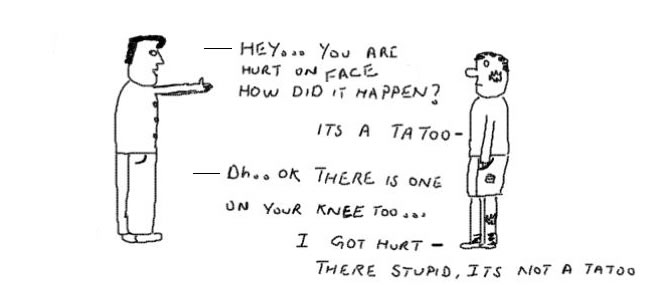 — HEY... YOU ARE
HURT ON FACE
HOW DID IT HAPPEN?
ITS A TATOO -
— Oh.. OK THERE IS ONE
ON YOUR KNEE TOO...
I GOT HURT -
THERE STUPID, ITS NOT A TATOO